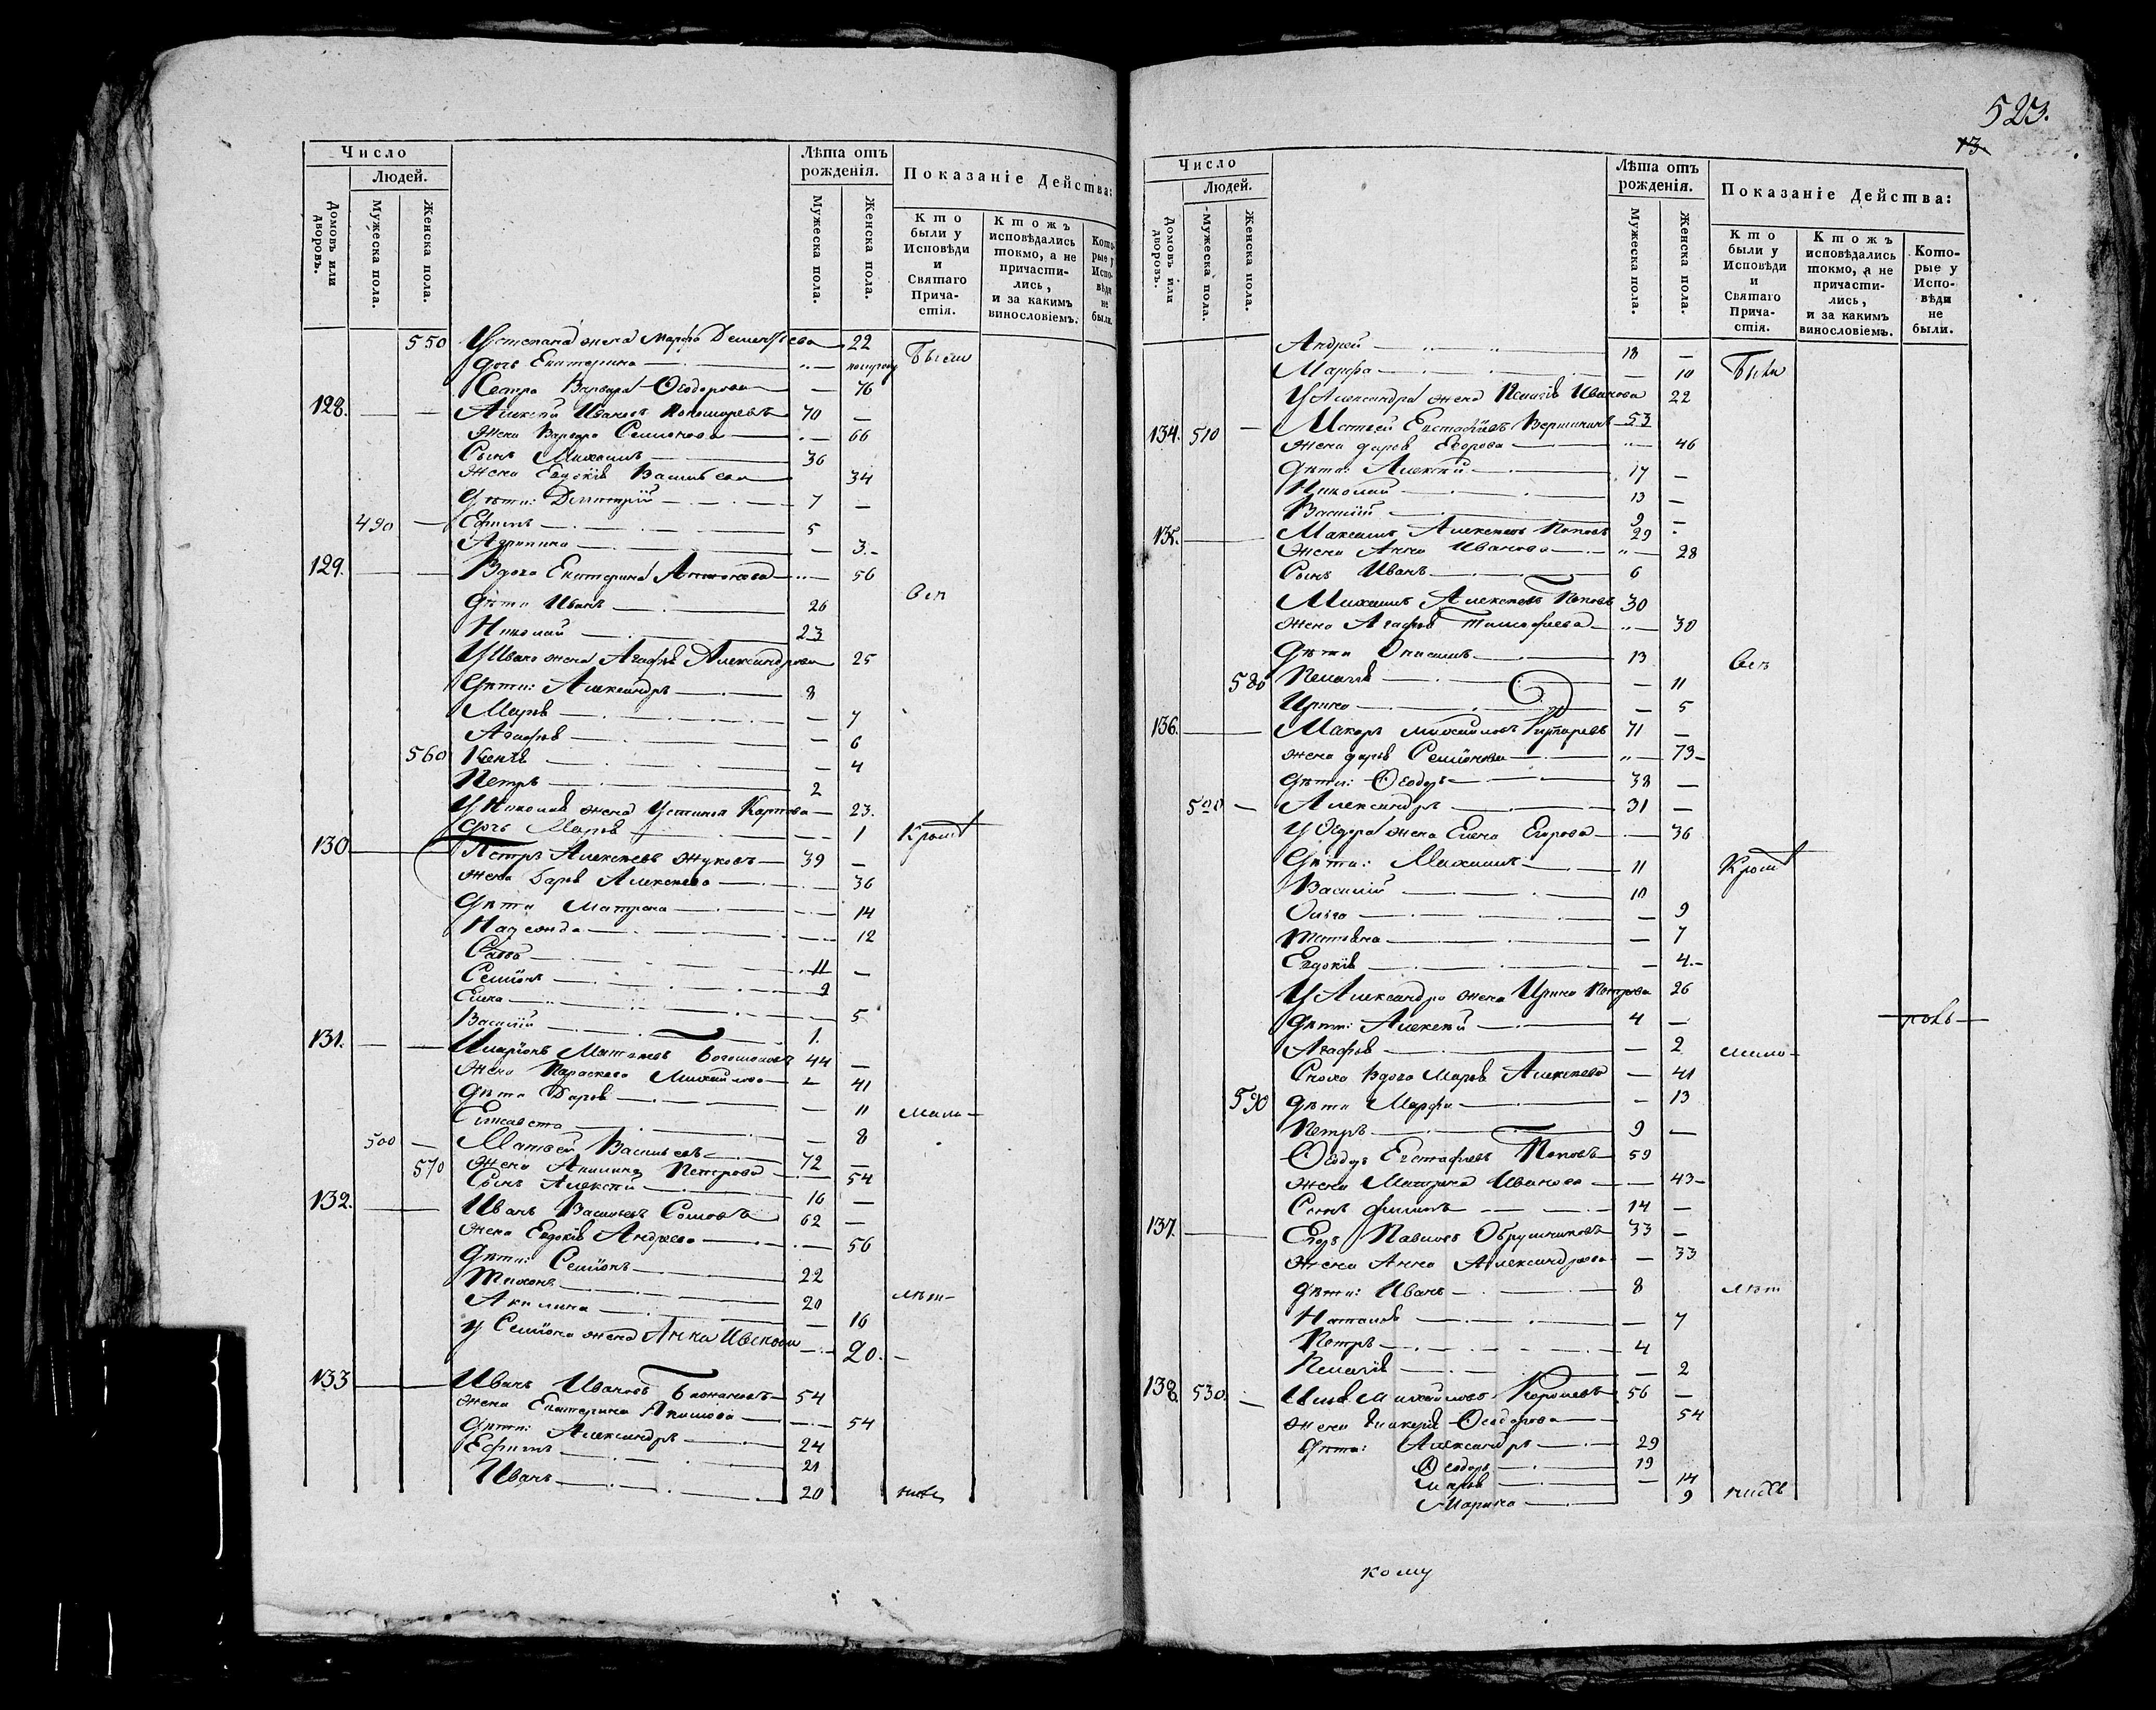 Число
Людей.
Домовъ или дворовъ.
Мужеска пола.
Женска пола.
Лѣта отъ рожденія.
Мужеска пола.
Женска пола.
Показаніе Действа:
Кто были у Исповѣди и Святаго Прича-стія.
Ктожъ исповѣдались токмо, а не причасти-лись, и за какимъ винословіемъ.
Кото-рые у Испо-вѣди не были.
550 У Степана жена Марфа 22 Были
дочь Екатерина
Сестра Варвара Ѳеодорова — 76
128. — — Алексѣй Ивановъ 70 —
жена Варвара Семенова — 66
Сынъ Михаилъ 36
жена Евдокія Васильева 34
дѣти: Дмитрій 7 —
490 — Ефимъ 5
Агрипина — 3
129. — — Вдова Екатерина 56
дѣти Иванъ 26 Всѣ
Николай 23
У Ивана жена Агафья Александрова 25
дѣти: Александръ 8
Марья — 7
Агафья — 6
560 — 4
Петръ 2
У Николая жена Устинья Карпова — 23.
дочь Марья — 1 Кромѣ
130 — Петръ Алексѣевъ Жуковъ 39 —
жена Дарья Алексѣева — 36
дѣти Матрона — 14
— 12
Савва 11 —
Семіонъ 9
Елена — 5
Василій 1.
131. — — Иларіонъ 44 —
жена Параскева Михайлова — 41
дѣти Дарья — 11 мало-
Елисавета — 8
500 — Матвей Васильевъ 72 —
570 жена Акилина Петрова — 54
Сынъ Алексѣй 16 —
132. — Иванъ Васильевъ Сомовъ 62 —
жена Евдокія Андреева — 56
дѣти: Семіонъ 22
Тихонъ 20 лѣт-
Акилина — 16
У Семіона жена Анна — 20.
133 — Иванъ Ивановъ 54
жена Екатерина Акимова — 54
дѣти: Александръ 24
Ефимъ 21
Иванъ 20 нихъ
523.
13.
Число
Людей.
Домовъ или дворовъ.
Мужеска пола.
Женска пола.
Лѣта отъ рожденія.
Мужеска пола.
Женска пола.
Показаніе Действа:
Кто были у Исповѣди и Святаго Прича-стія.
Ктожъ исповѣдались токмо, а не причасти-лись, и за какимъ винословіемъ.
Кото-рые у Испо-вѣди не были.
Андрей 18 — Были
Марфа — 10
У Александра жена Пелагія Иванова 22
134. 510 — Матвей Евстафіевъ 53
жена Дарья Егорова — 46
дѣти: Алексѣй 17 —
Николай 13 —
Василій 9 —
135. — Максимъ Алексѣевъ Поповъ 29 -
жена Анна Иванова — 28
Сынъ Иванъ 6
Михаилъ Алексѣевъ Поповъ 30
жена Агафья Тимофеева — 30
дѣти 13 Всѣ
580 Пелагія — 11
Ирина — 5
136. — Макаръ Михайловъ 71 —
жена Дарья Семіонова — 73
дѣти: Ѳеодоръ 38 —
520 — Александръ 31 —
У Ѳедора жена Елена Егорова — 36
дѣти: Михаилъ 11 Кромѣ
Василій 10
Ольга — 9
Татьяна — 7
Евдокія — 4
У Александра жена Ирина Петрова 26
дѣти: Алексѣй 4 —
Агафья — 2 мало-
Сноха вдова Марья Алексѣева — 41
590 дѣти Марфа — 13
Петръ 9 —
Ѳеодоръ Евстафіевъ Поповъ 59
жена Матрона Иванова — 43
Сынъ Филипъ 14 —
137. — Егоръ Павловъ 33 —
жена Анна Александрова — 33
дѣти: Иванъ 8 лѣт
Наталья — 7
Петръ 4
Пелагія — 2
138. 530. — Илья Михайловъ Королевъ 56 —
жена Ѳеодорова 54
дѣти: Александръ 29
Ѳеодоръ 19
Марья — 14
Марина 9 нихъ
кому